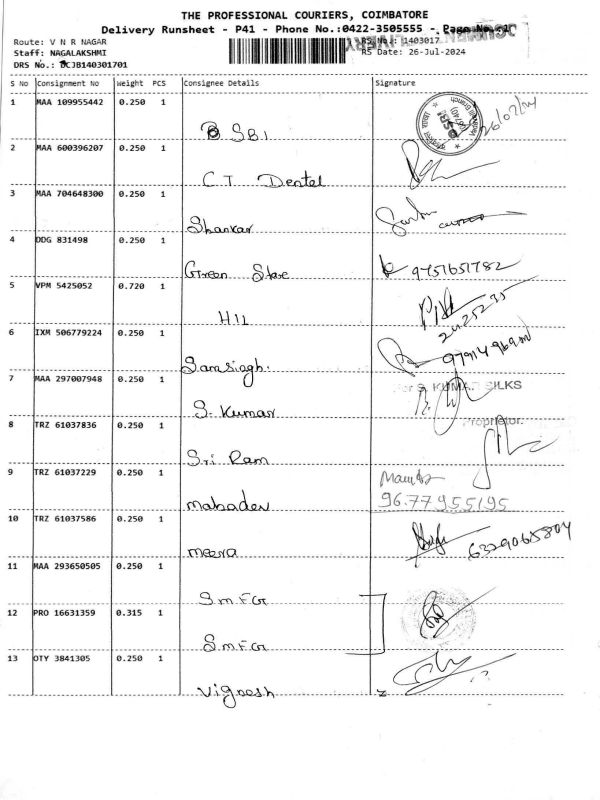 THE PROFESSIONAL COURIERS, COIMBATORE
Delivery Runsheet - P41 - Phone No.:0422-3505555 - Page No. :1
Route: V N R NAGAR
RS No.: 1403017
Staff: NAGALAKSHMI
RS Date: 26-Jul-2024
DRS No.: DCJB140301701
S No Consignment No Weight PCS Consignee Details Signature
1 MAA 109955442 0.250 1
SBI 26/07/24
2 MAA 600396207 0.250 1
C.T Dental
3 MAA 704648300 0.250 1
Shankar
4 DDG 831498 0.250 1
Green Stare 9751651782
5 VPM 5425052 0.720 1
HIL
6 IXM 506779224 0.250 1
Ramsingh.
7 MAA 297007948 0.250 1
For S. KUMAR SILKS
S. Kumar
8 TRZ 61037836 0.250 1
Proprietor.
Sri Ram
9 TRZ 61037229 0.250 1
Mahadev 9677955195
10 TRZ 61037586 0.250 1
meera 6329065804
11 MAA 293650505 0.250 1
SMFG
12 PRO 16631359 0.315 1
SMFG
13 OTY 3841305 0.250 1
Vignesh